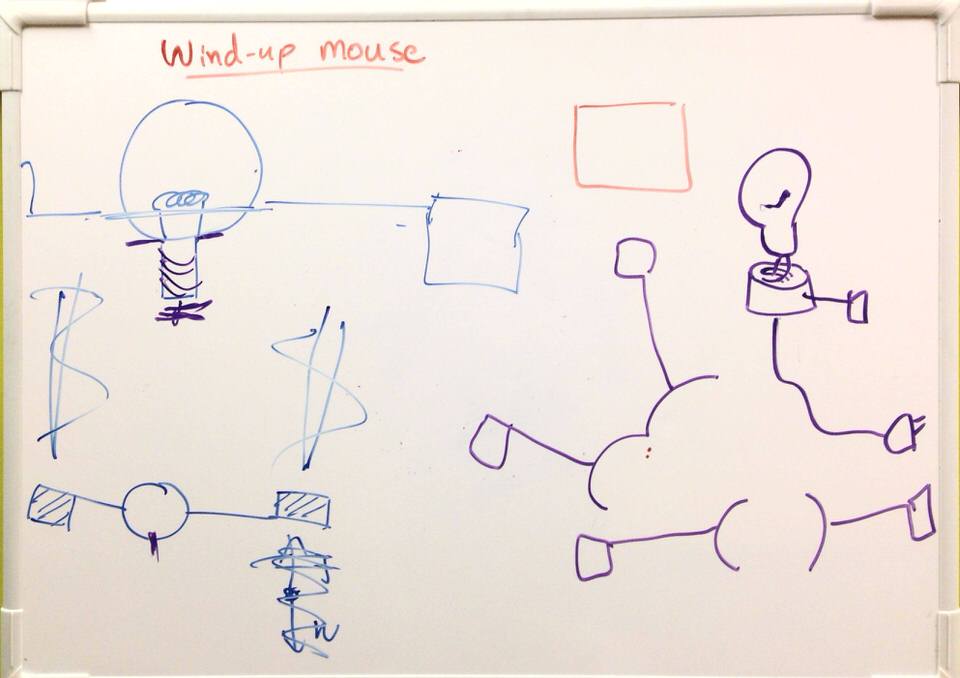 Wind-up mouse